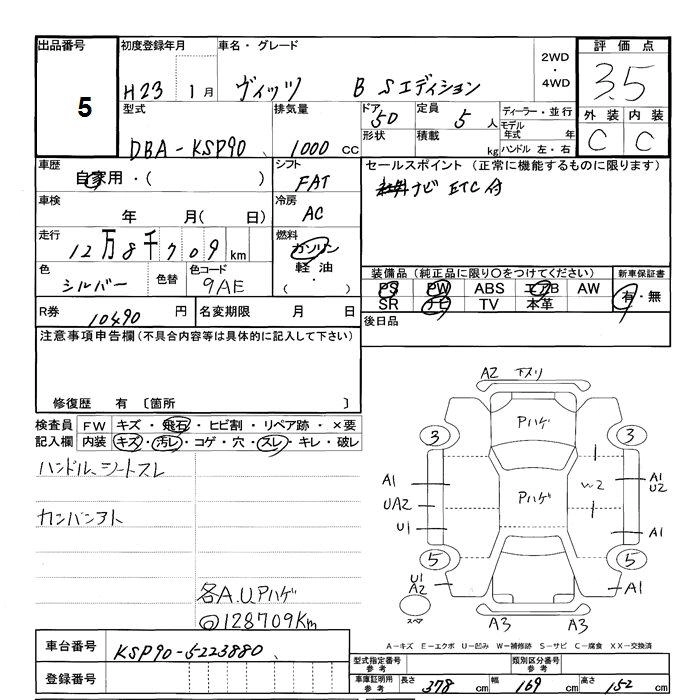 出品番号
5
初度登録年月
H23 1月
車名・グレード
ヴィッツ B Sエディション
2WD
・
4WD
評価点
3.5
外装 内装
C C
型式
DBA-KSP90
排気量
1000 cc
ドア 5D
形状
定員 5 人
積載 kg
ディーラー・並行
モデル
年式 年
ハンドル 左・右
車歴
自家用・( )
シフト
FAT
車検
年 月( 日)
冷房
AC
走行
12万8千709km
燃料
ガソリン
軽油
( ・ )
色
シルバー
色替
色コード
9AE
R券
10490 円
名変期限 月 日
セールスポイント(正常に機能するものに限ります)
ナビ ETC付
装備品(純正品に限り〇をつけてください)
PS PW ABS エアB AW
SR ナビ TV 本革
新車保証書
有・無
後日品
注意事項申告欄(不具合内容等は具体的に記入して下さい)
修復歴 有〔箇所 〕
検査員
記入欄
FW キズ・飛石・ヒビ割・リペア跡・×要
内装 キズ・汚レ・コゲ・穴・スレ・キレ・破レ
ハンドル、シートスレ
カンバンアト
各A.U.Pハゲ
◎128709Km
A2 下スリ
Pハゲ
3 3
A1
UA2
U1
Pハゲ
W2
A1
U2
A1
5 5
U1
A2
A1
スペア
A3 A3
A-キズ E-エクボ U-凹み W-補修跡 S-サビ C-腐食 XX-交換済
車台番号
KSP90-5223880
登録番号
型式指定番号
参考
類別区分番号
参考
車庫証明用
参考
長さ 378 cm 幅 169 cm 高さ 152 cm